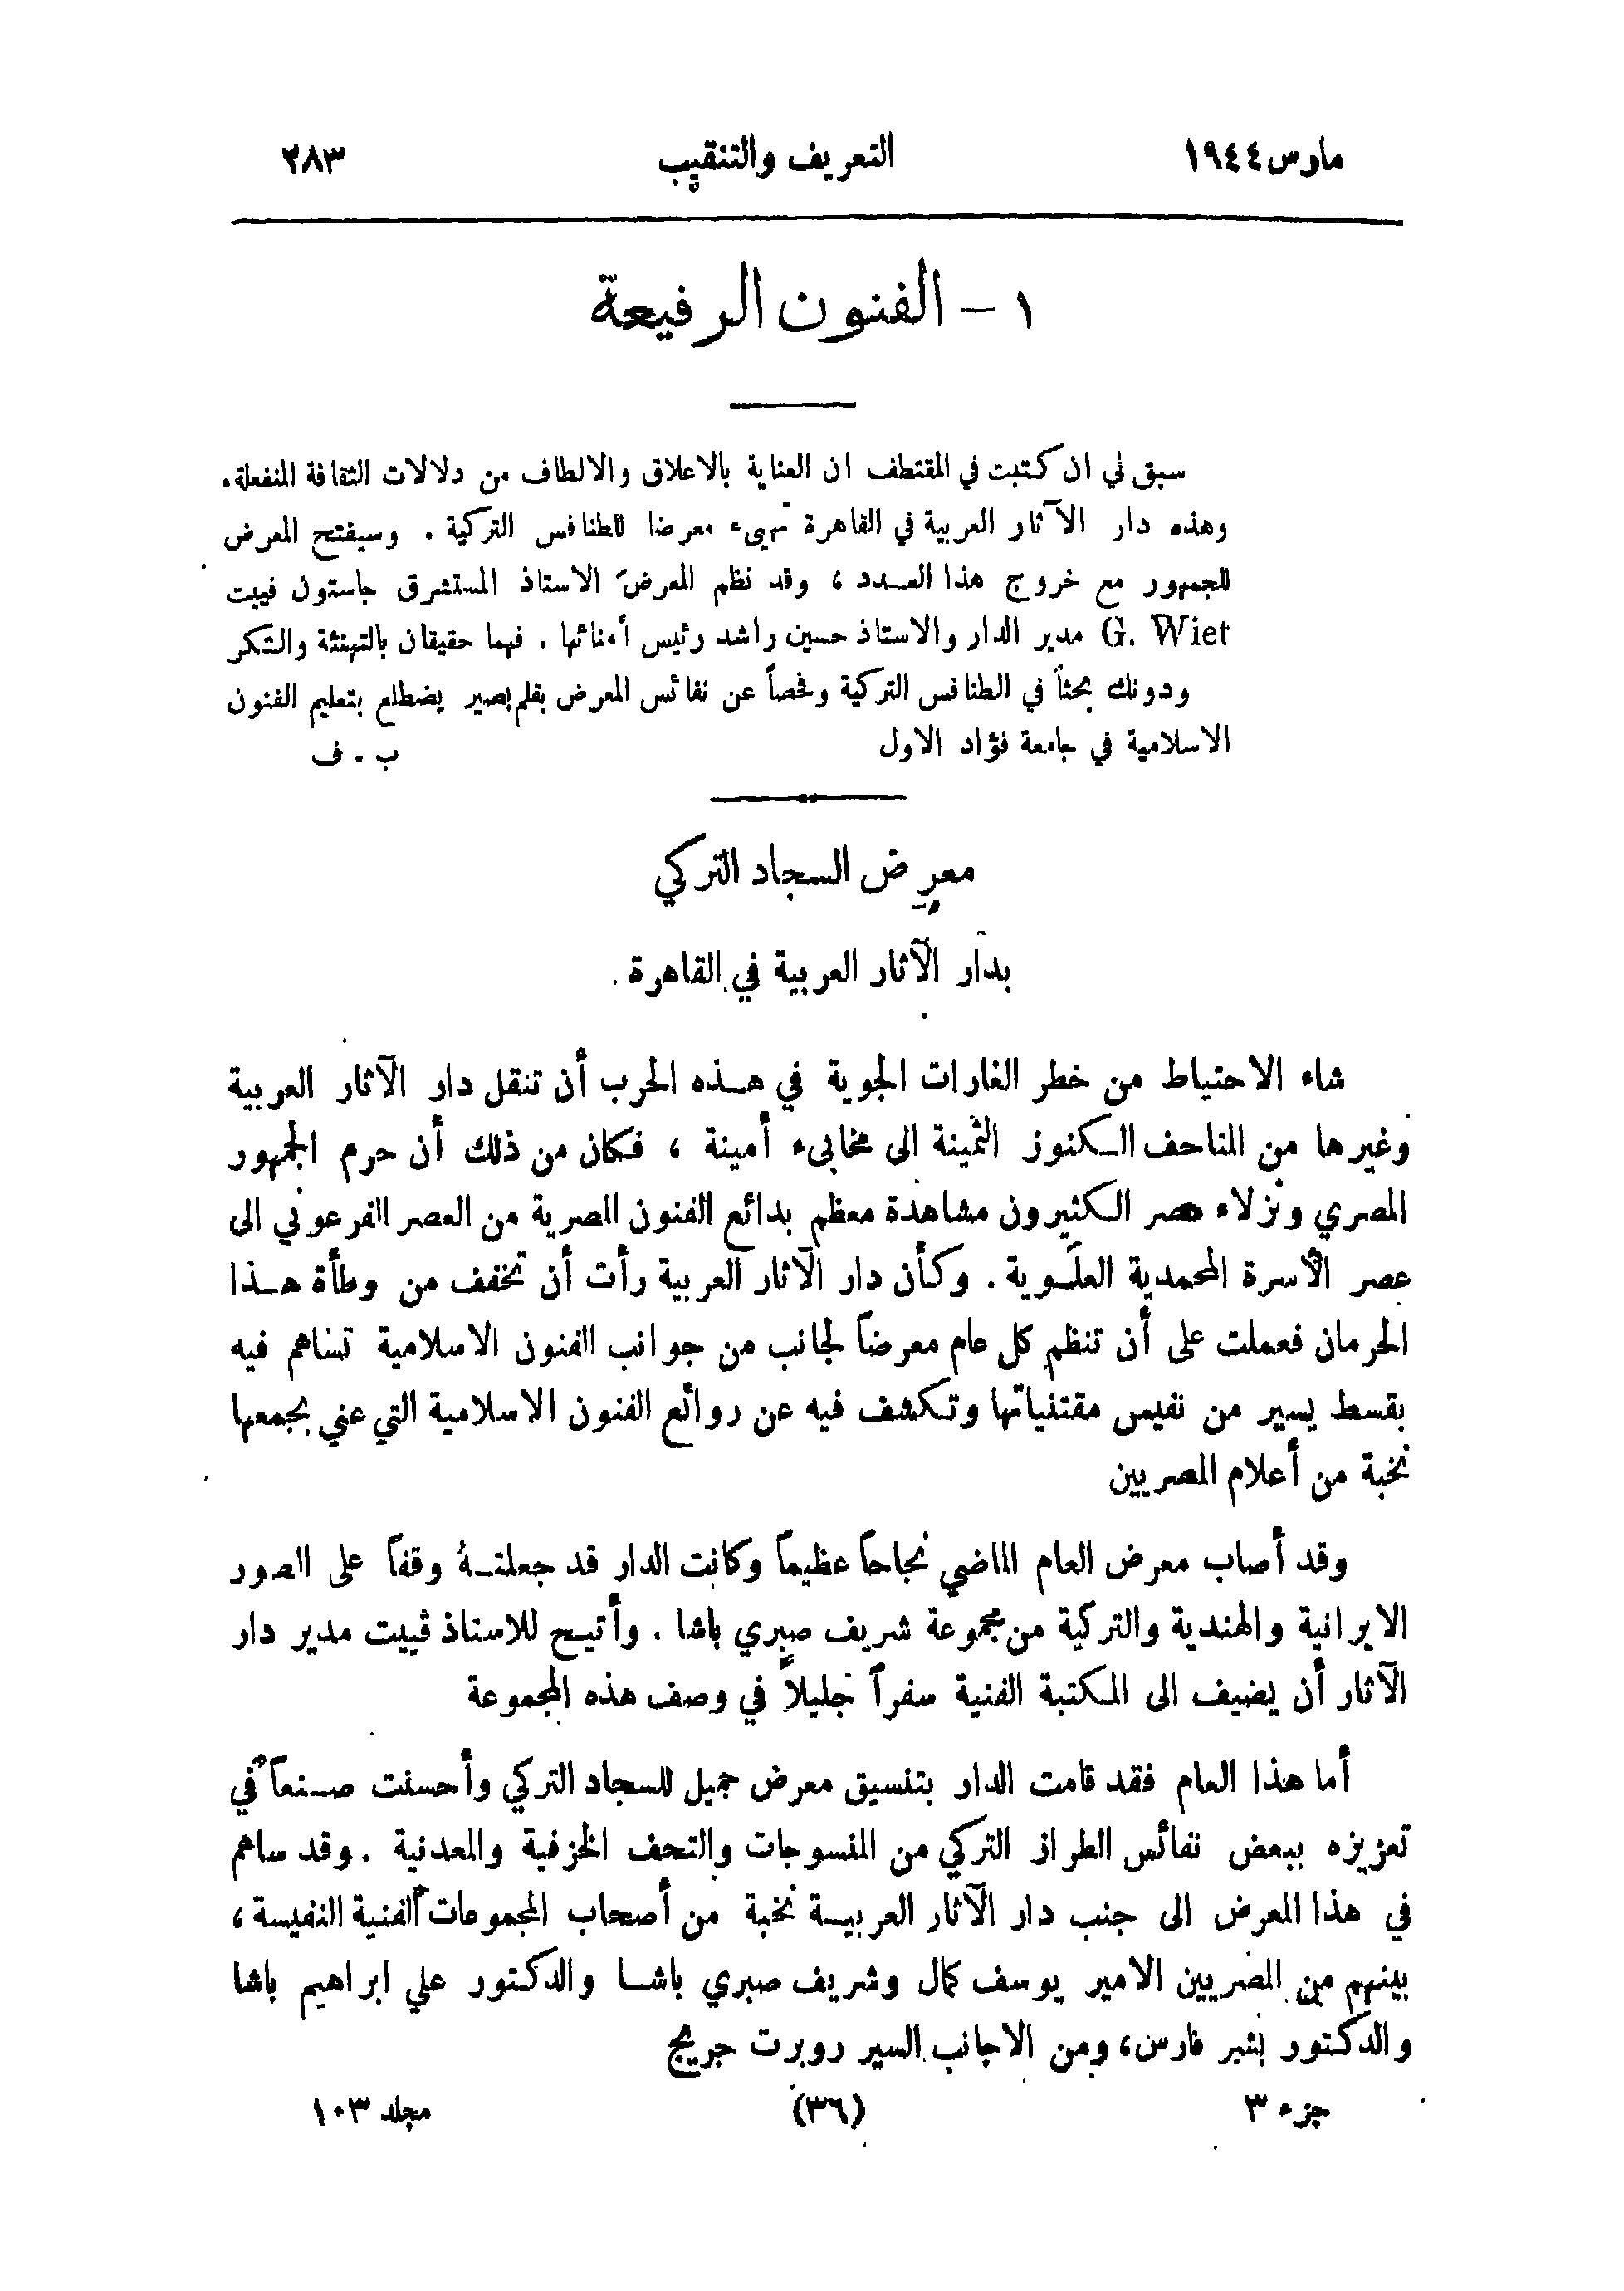 مارس ١٩٤٤ التعريف والتنقيب ٢٨٣
١ – الفنون الرفيعة
سبق لي ان كتبت في المقتطف ان العناية بالاعلاق والالطاف من دلالات الثقافة المنفعلة.
وهذه دار الآثار العربية في القاهرة تهيىء معرضا للطنافس التركية . وسيفتح المعرض
للجمهور مع خروج هذا العـدد ، وقد نظم المعرض الاستاذ المستشرق جاستون فييت
G. Wiet مدير الدار والاستاذ حسين راشد رئيس أمنائها . فهما حقيقان بالتهنئة والشكر
ودونك بحثاً في الطنافس التركية وفحصاً عن نفائس المعرض بقلم بصير يضطلع بتعليم الفنون
الاسلامية في جامعة فؤاد الاول ب . ف
معرض السجاد التركي
بدار الآثار العربية في القاهرة
شاء الاحتياط من خطر الغارات الجوية في هـذه الحرب أن تنقل دار الآثار العربية
وغيرها من المتاحف الـكنوز الثمينة الى مخابىء أمينة ، فكان من ذلك أن حرم الجمهور
المصري ونزلاء مصر الـكثيرون مشاهدة معظم بدائع الفنون المصرية من العصر الفرعوني الى
عصر الأسرة المحمدية العلَـوية . وكأن دار الآثار العربية رأت أن تخفف من وطأة هـذا
الحرمان فعملت على أن تنظم كل عام معرضاً لجانب من جوانب الفنون الاسلامية تساهم فيه
بقسط يسير من نفيس مقتنياتها وتـكشف فيه عن روائع الفنون الاسلامية التي عني بجمعها
نخبة من أعلام المصريين
وقد أصاب معرض العام الماضي نجاحاً عظيماً وكانت الدار قد جعلتـهُ وقفاً على الصور
الايرانية والهندية والتركية من مجموعة شريف صبري باشا . وأتيـح للاستاذ ڤييت مدير دار
الآثار أن يضيف الى المـكتبة الفنية سفراً جليلاً في وصف هذه المجموعة
أما هذا العام فقد قامت الدار بتنسيق معرض جميل للسجاد التركي وأحسنت صـنعاً في
تعزيزه ببعض نفائس الطراز التركي من المنسوجات والتحف الخزفية والمعدنية . وقد ساهم
في هذا المعرض الى جنب دار الآثار العربيـة نخبة من أصحاب المجموعات الفنية النفيسة ،
بينهم من المصريين الامير يوسف كمال وشريف صبري باشـا والدكتور علي ابراهيم باشا
والدكتور بشر فارس ، ومن الاجانب السير روبرت جريج
جزء ٣ (٣٦) مجلد ١٠٣